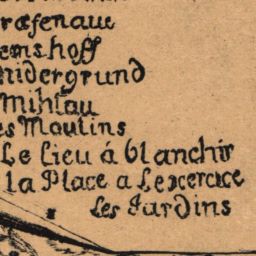 ræfenaw
emshoff
nidergrund
Mihlau
es Moulins
Le lieu á blanchir
la Place a Lexcercice
Les Jardins